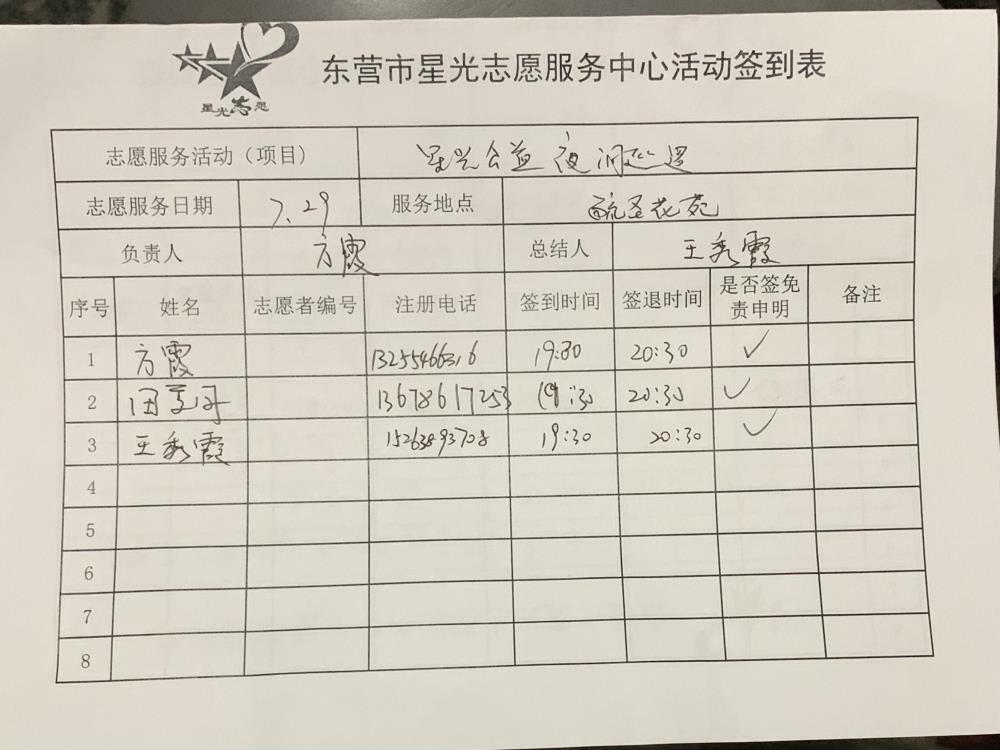 星光志愿
东营市星光志愿服务中心活动签到表
志愿服务活动（项目） 星光公益夜间巡逻
志愿服务日期 7.29 服务地点 圣花苑
负责人 方霞 总结人 王秀霞
序号 姓名 志愿者编号 注册电话 签到时间 签退时间 是否签免责申明 备注
1 方霞 13255466316 19:30 20:30 ✓
2 13678617253 19:30 20:30 ✓
3 王秀霞 15263893708 19:30 20:30 ✓
4
5
6
7
8